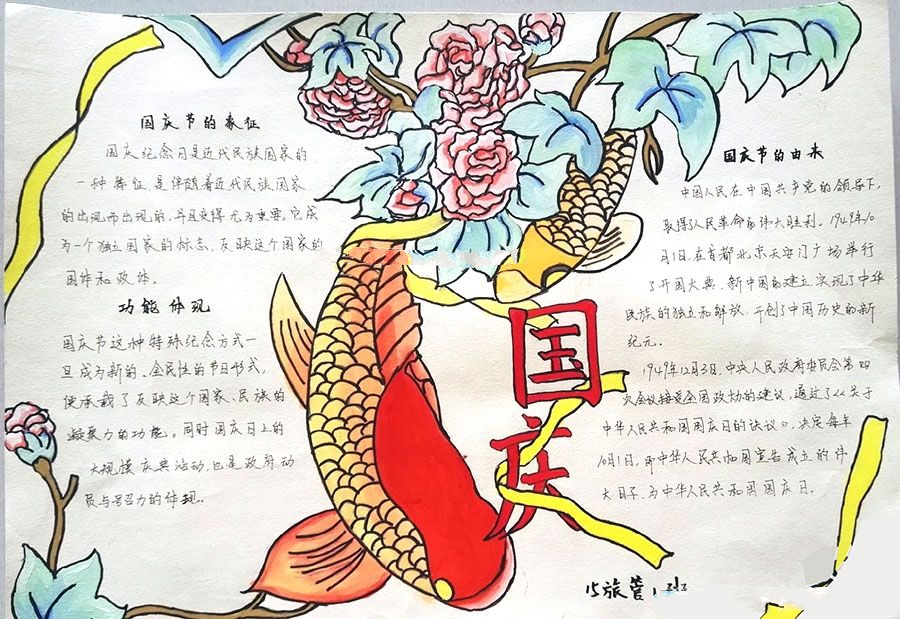 国庆节的象征
国庆纪念日是近代民族国家的
一种特征,是伴随着近代民族国家
的出现而出现的,并且变得尤为重要。它成
为一个独立国家的标志,反映这个国家的
国体和政体。
功能体现
国庆节这种特殊纪念方式一
旦成为新的、全民性的节日形式,
便承载了反映这个国家、民族的
凝聚力的功能。同时国庆日上的
大规模庆典活动,也是政府动
员与号召力的体现。
国庆
国庆节的由来
中国人民在中国共产党的领导下,
取得人民革命的伟大胜利。1949年10
月1日,在首都北京天安门广场举行
了开国大典,新中国的建立实现了中华
民族的独立和解放,开创了中国历史的新
纪元。
1949年12月3日,中央人民政府委员会第四
次会议接受全国政协的建议,通过了《关于
中华人民共和国国庆日的决议》,决定每年
10月1日,即中华人民共和国宣告成立的伟
大日子,为中华人民共和国国庆日。
15旅管1班